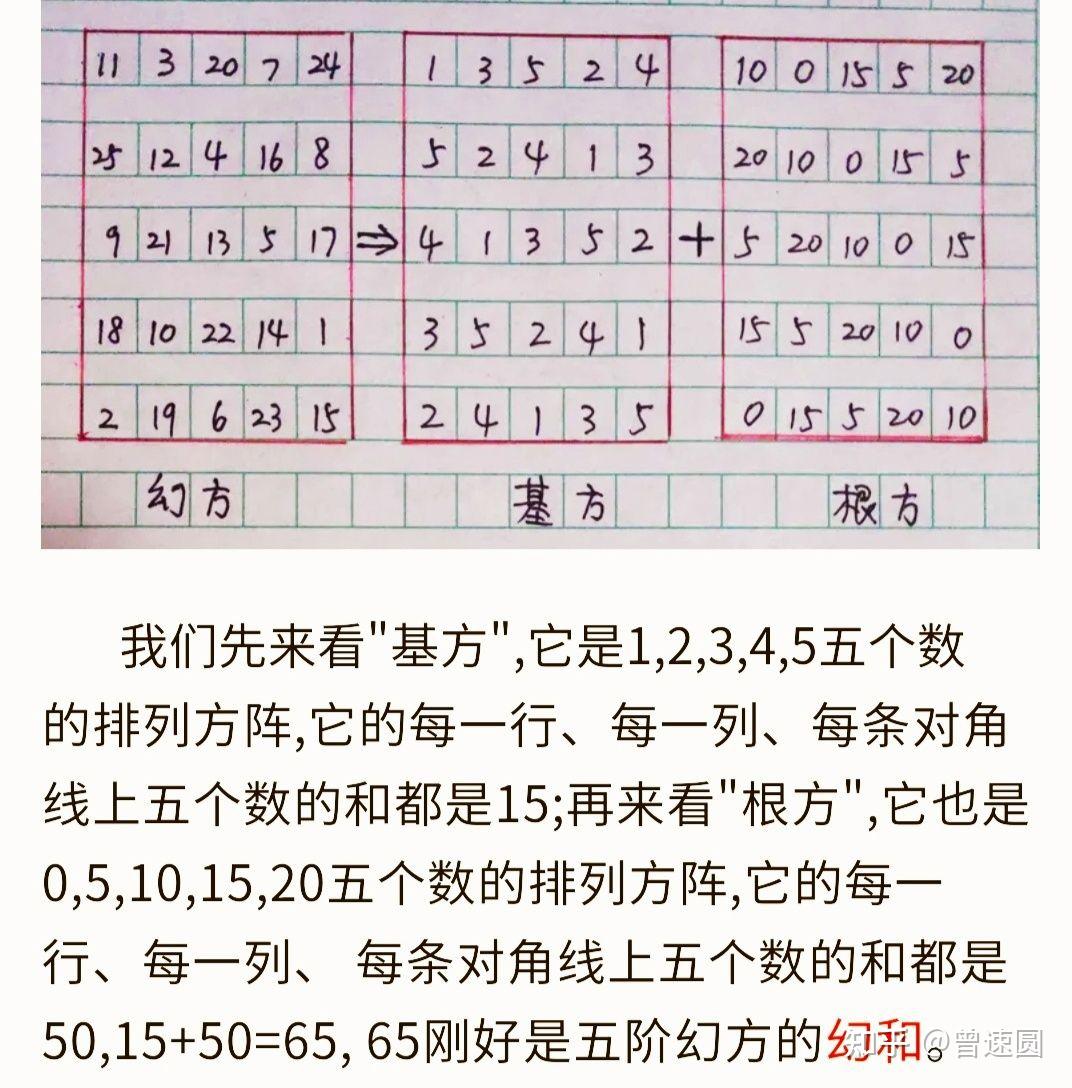 11 3 20 7 24 1 3 5 2 4 10 0 15 5 20
25 12 4 16 8 5 2 4 1 3 20 10 0 15 5
9 21 13 5 17 ⇒ 4 1 3 5 2 + 5 20 10 0 15
18 10 22 14 1 3 5 2 4 1 15 5 20 10 0
2 19 6 23 15 2 4 1 3 5 0 15 5 20 10
幻方 基方 根方
我们先来看"基方",它是1,2,3,4,5五个数
的排列方阵,它的每一行、每一列、每条对角
线上五个数的和都是15;再来看"根方",它也是
0,5,10,15,20五个数的排列方阵,它的每一
行、每一列、 每条对角线上五个数的和都是
50,15+50=65, 65刚好是五阶幻方的幻和。
知乎 @曾速圆